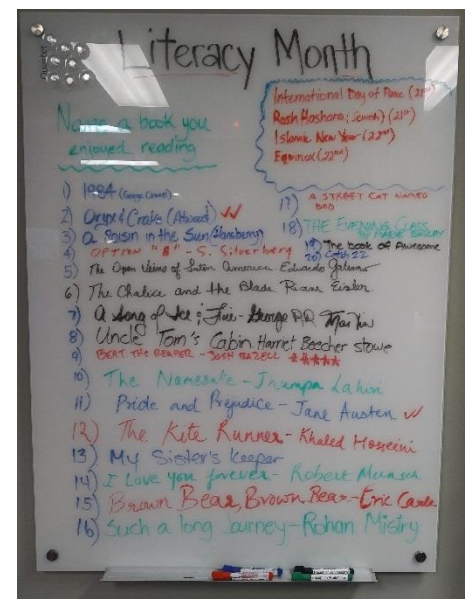 Literacy Month
International Day of Peace (21st)
Rosh Hashana; Jewish) (21st)
Islamic New Year (22nd)
Equinox (22nd)
Name a book you
enjoyed reading
1) 1984 (George Orwell)
2) Oryx & Crake (Atwood) ✓✓
3) A Raisin in the Sun (Hansberry)
4) OPTION "B" - S. Silverberg
5) The Open Veins of Latin America Eduardo Galeano
6) The Chalice and the Blade Riane Eisler
7) A Song of Ice & Fire - George R.R. Martin
8) Uncle Tom's Cabin Harriet Beecher Stowe
9) BEAT THE REAPER - JOSH BAZELL ★★★★★
10) The Namesake - Jhumpa Lahiri
11) Pride and Prejudice - Jane Austen ✓✓
12) The Kite Runner - Khaled Hosseini
13) My Sister's Keeper
14) I Love you forever - Robert Munsch
15) Brown Bear, Brown Bear - Eric Carle
16) Such a long Journey - Rohan Mistry
17) A STREET CAT NAMED
BOB
18) THE EVENING CLASS
BY MAEVE BINCHY
19) The book of Awesome
20) Catch 22